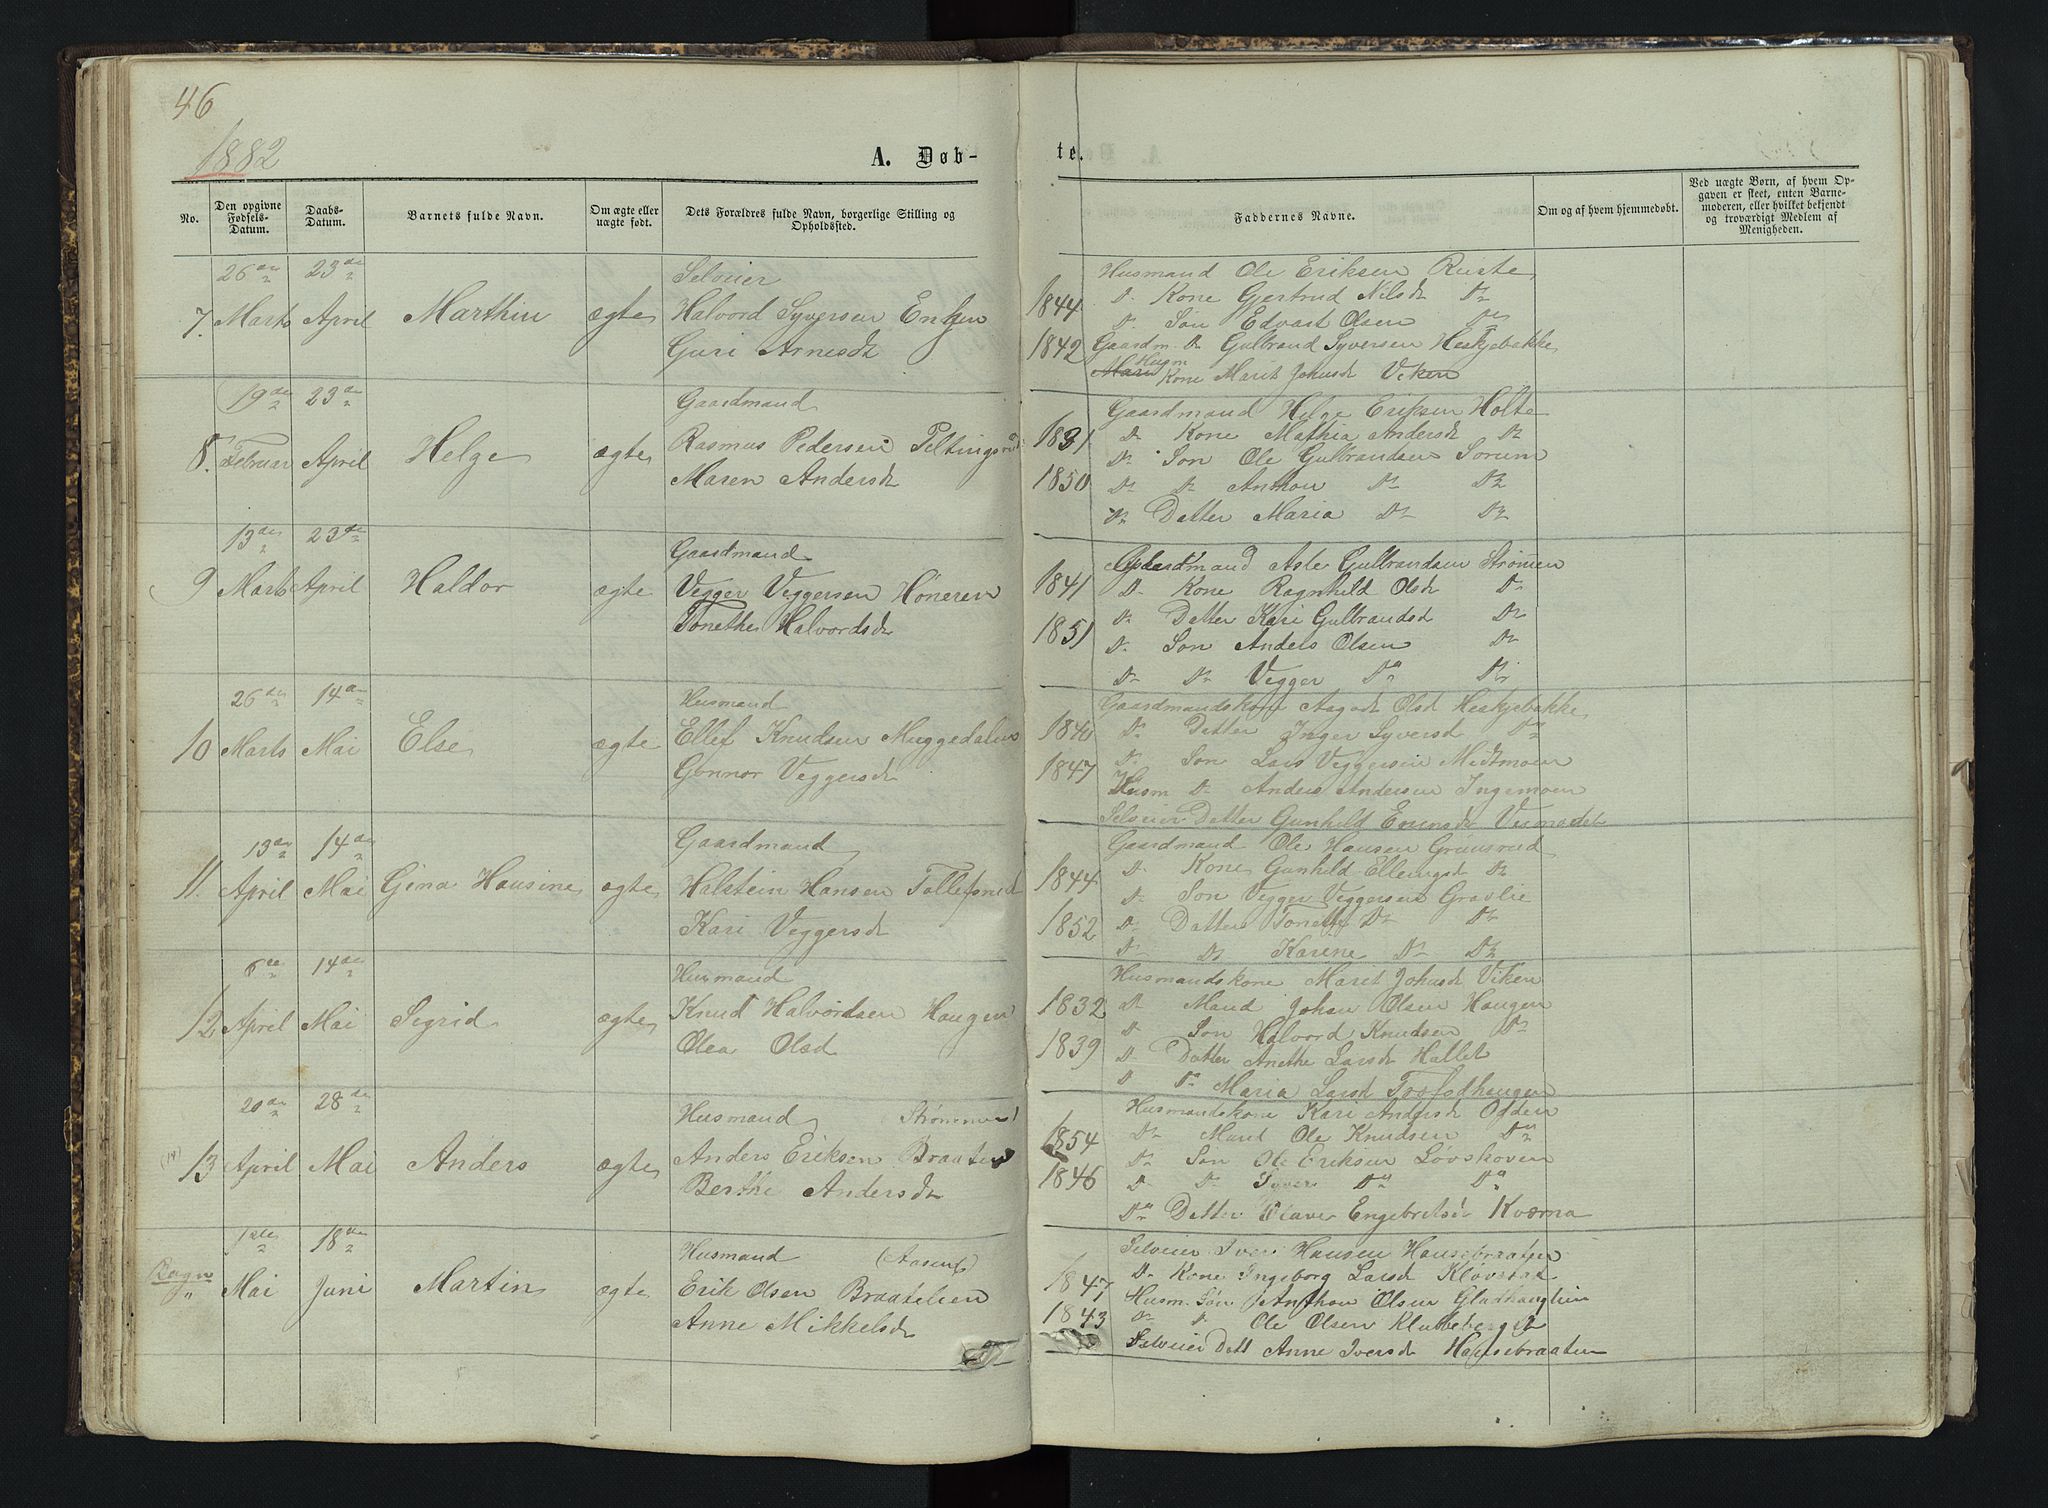 46
1882
A. Døb-
te.
No.
Den opgivne Fødsels-Datum.
Daabs-Datum.
Barnets fulde Navn.
Om ægte eller uægte født.
Dets Forældres fulde Navn, borgerlige Stilling og Opholdssted.
Faddernes Navne.
Om og af hvem hjemmedøbt.
Ved uægte Børn, af hvem Opgaven er skeet, enten Barnemoderen, eller hvilket bekjendt og troværdigt Medlem af Menigheden.
26de 23de Selveier
7. Marts April Marthin ægte Halvord Syversen Enhjen
Guri Arnesdt
1844 1842
Husmand Ole Eriksen Ruste
Do Kone Gjertrud Nilsdt Do
Do Søn Edvart Olsen Do
Gaardm. Do Gulbrand Syversen Heskjebakke
Husm Kone Marit Johnsdt Viken
19de 23de Gaardmand
8. Februar April Helge ægte Rasmus Pedersen
Maren Andersdt
1831 1850
Gaardmand Helge Eriksen Holte
Do Kone Mathia Andersdt Do
Do Søn Ole Gulbrandsen Sorum
Do Do Anthon Do Do
Do Datter Maria Do Do
13de 23de Gaardmand
9 Marts April Haldor ægte Vegger Veggersen Høneren
Tonethe Halvordsdt
1841 1851
Gaardmand Asle Gulbrandsen Strømen
Do Kone Ragnhild Olsdt Do
Do Datter Kari Gulbrandsdt Do
Do Søn Anders Olsen Do
Do Do Vegger Do Do
26de 14de Husmand
10 Marts Mai Else ægte Ellef Knudsen Muggedalen
Gonnor Veggersdt
1840 1847
Gaardmandskone Aagodt Olsd Heskjebakke
Do Datter Inger Syversd Do
Do Søn Lars Veggersen Midtmoen
Husm Do Anders Andersen Ingemoen
Selveier Datter Gunhild
13de 14de Gaardmand
11. April Mai Gina Hansine ægte Halstein Hansen Tollefsrud
Kari Veggersdt
1844 1852
Gaardmand Ole Hansen Grimsrud
Do Kone Gunhild Ellingsdt Do
Do Søn Vegger Veggersen Gravlie
Do Datter Tonette Do Do
Do Do Karine Do Do
6te 14de Husmand
12 April Mai Sigrid ægte Knud Halvordsen Haugen
Olea Olsd
1832 1839
Husmandskone Marit Johnsdt Viken
Do Mand Johan Olsen Haugen
Do Søn Halvord Knudsen Do
Do Datter Anethe Larsdt Hallet
Do Do Maria Larsd
20de 28de Husmand
13 April Mai Anders ægte Anders Eriksen Braaten
Berthe Andersdt
1854 1846
Husmandskone Kari Andersdt Odden
Do Mand Ole Knudsen Do
Do Søn Ole Eriksen Løvskoven
Do Do Iver Do Do
Do Datter Engebretsd Kværna
1ste 18de Husmand (Aasen)
Bagn Mai Juni Martin ægte Erik Olsen Braatelien
Anne Mikkelsdt
1847 1843
Selveier Iver Hansen Hansebraaten
Do Kone Ingeborg Larsdt Kløvstad
Husm. Søn Anthon Olsen Gladhauglien
Do Do Ole Olsen
Selveier Datt Anne Iversdt Hansebraaten